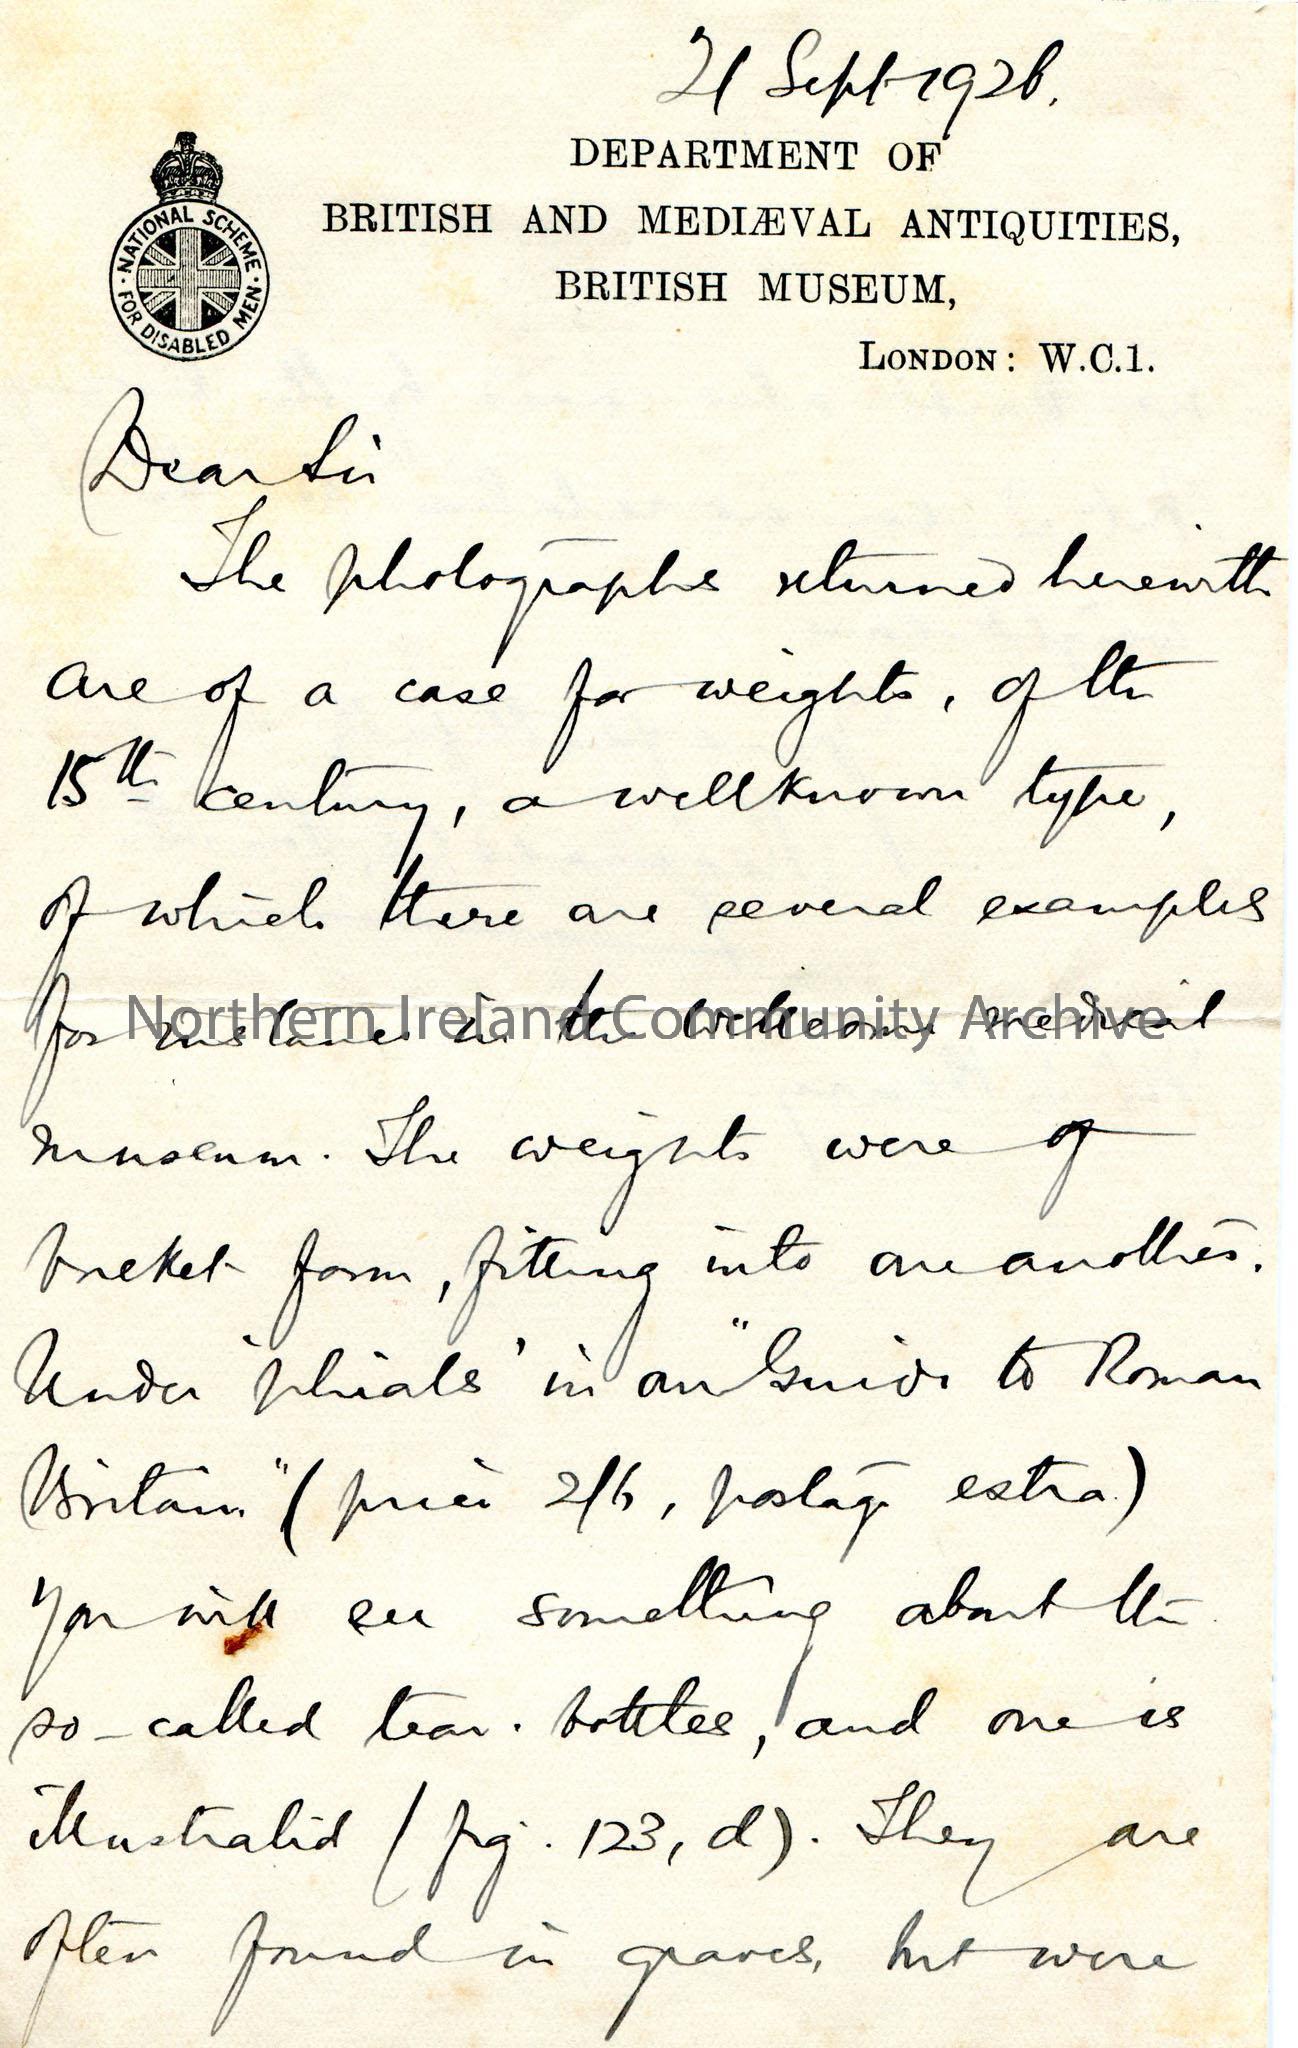 21 Sept 1926.
DEPARTMENT OF
BRITISH AND MEDIÆVAL ANTIQUITIES,
BRITISH MUSEUM,
LONDON: W.C.1.
NATIONAL SCHEME
FOR DISABLED MEN
Dear Sir
The photographs returned herewith
are of a case for weights, of the
15th century, a wellknown type,
of which there are several examples
for instance in the Wellcome medical
Northern Ireland Community Archive
museum. The weights were of
bucket form, fitting into one another.
Under 'phials' in our "Guide to Roman
Britain" (price 2/6, postage extra)
you will see something about the
so-called tear-bottles, and one is
illustrated (fig. 123, d). They are
often found in graves, but were